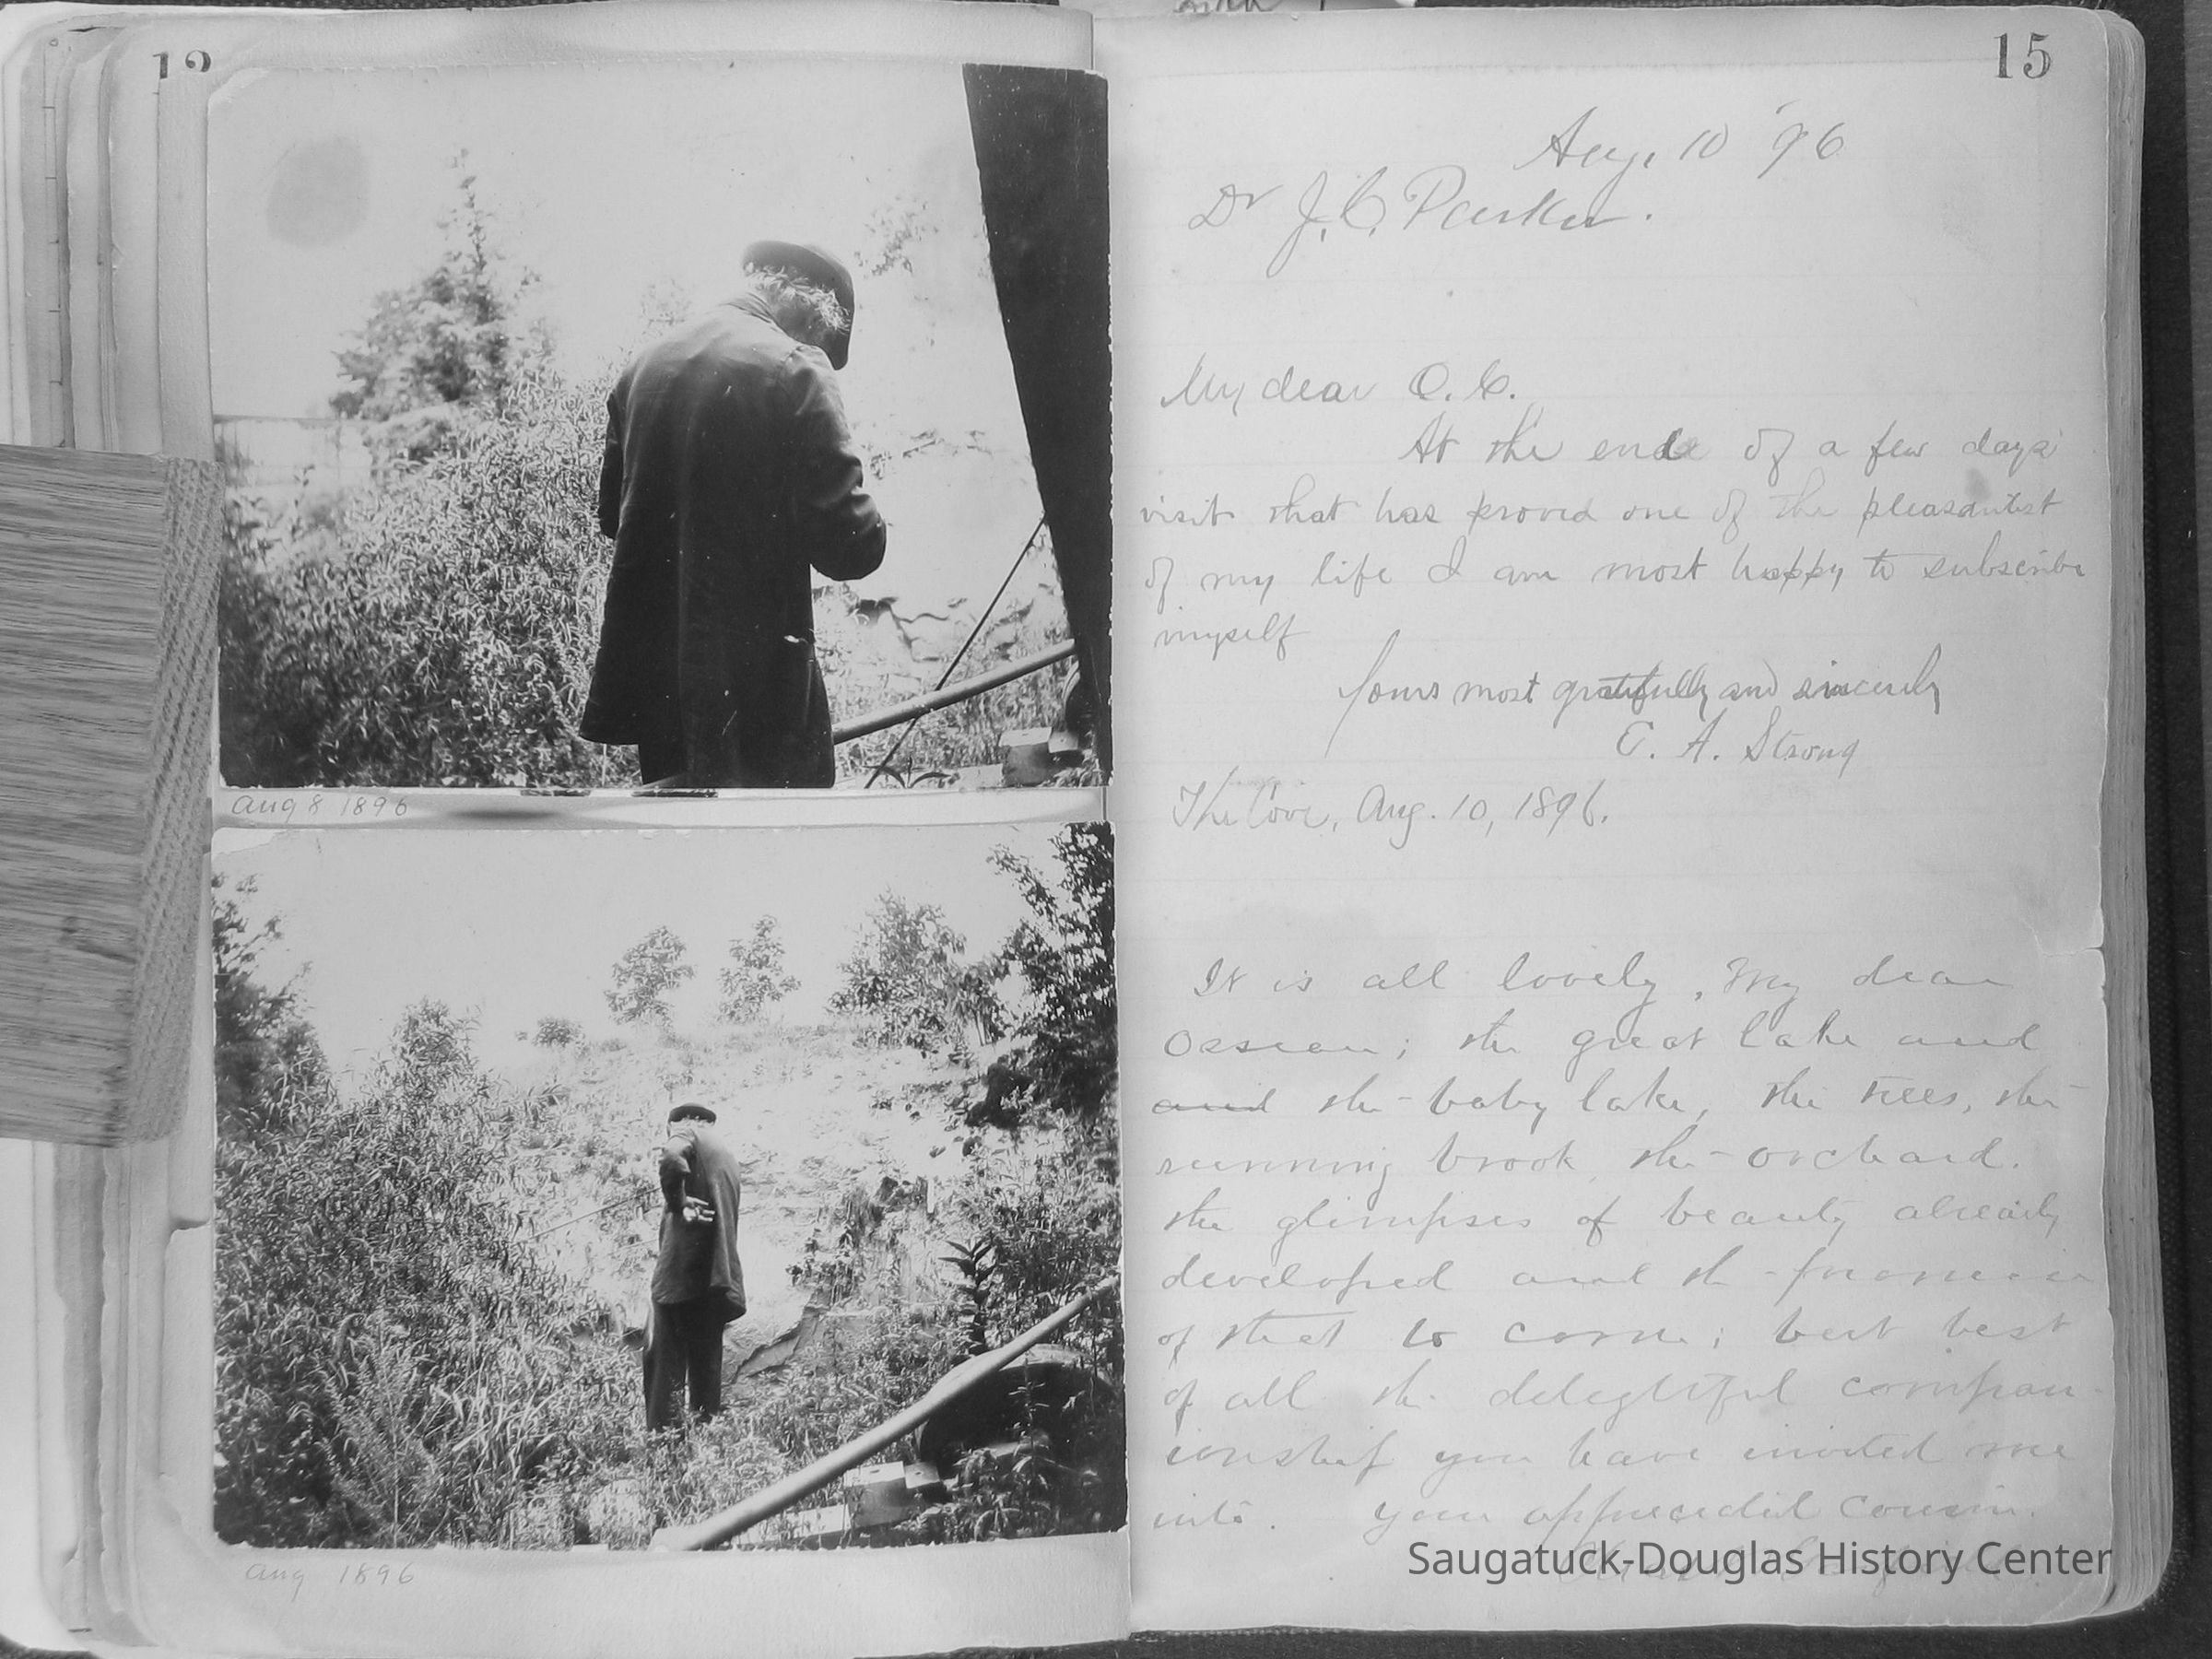 12
Aug 8 1896
Aug 1896
15
Aug. 10 '96
Dr J. C. Parker.
My dear O. C.
At the end of a few days'
visit that has proved one of the pleasantest
of my life I am most happy to subscribe
myself
Yours most gratefully and sincerely
E. A. Strong
The Cove, Aug. 10, 1896.
It is all lovely, My dear
Ossian; the great lake and
and the baby lake, the trees, the
running brook the orchard.
the glimpses of beauty already
developed and the promise
of that to come; but best
of all the delightful compan-
ionship you have invited me
into. Your cousin.
Saugatuck-Douglas History Center